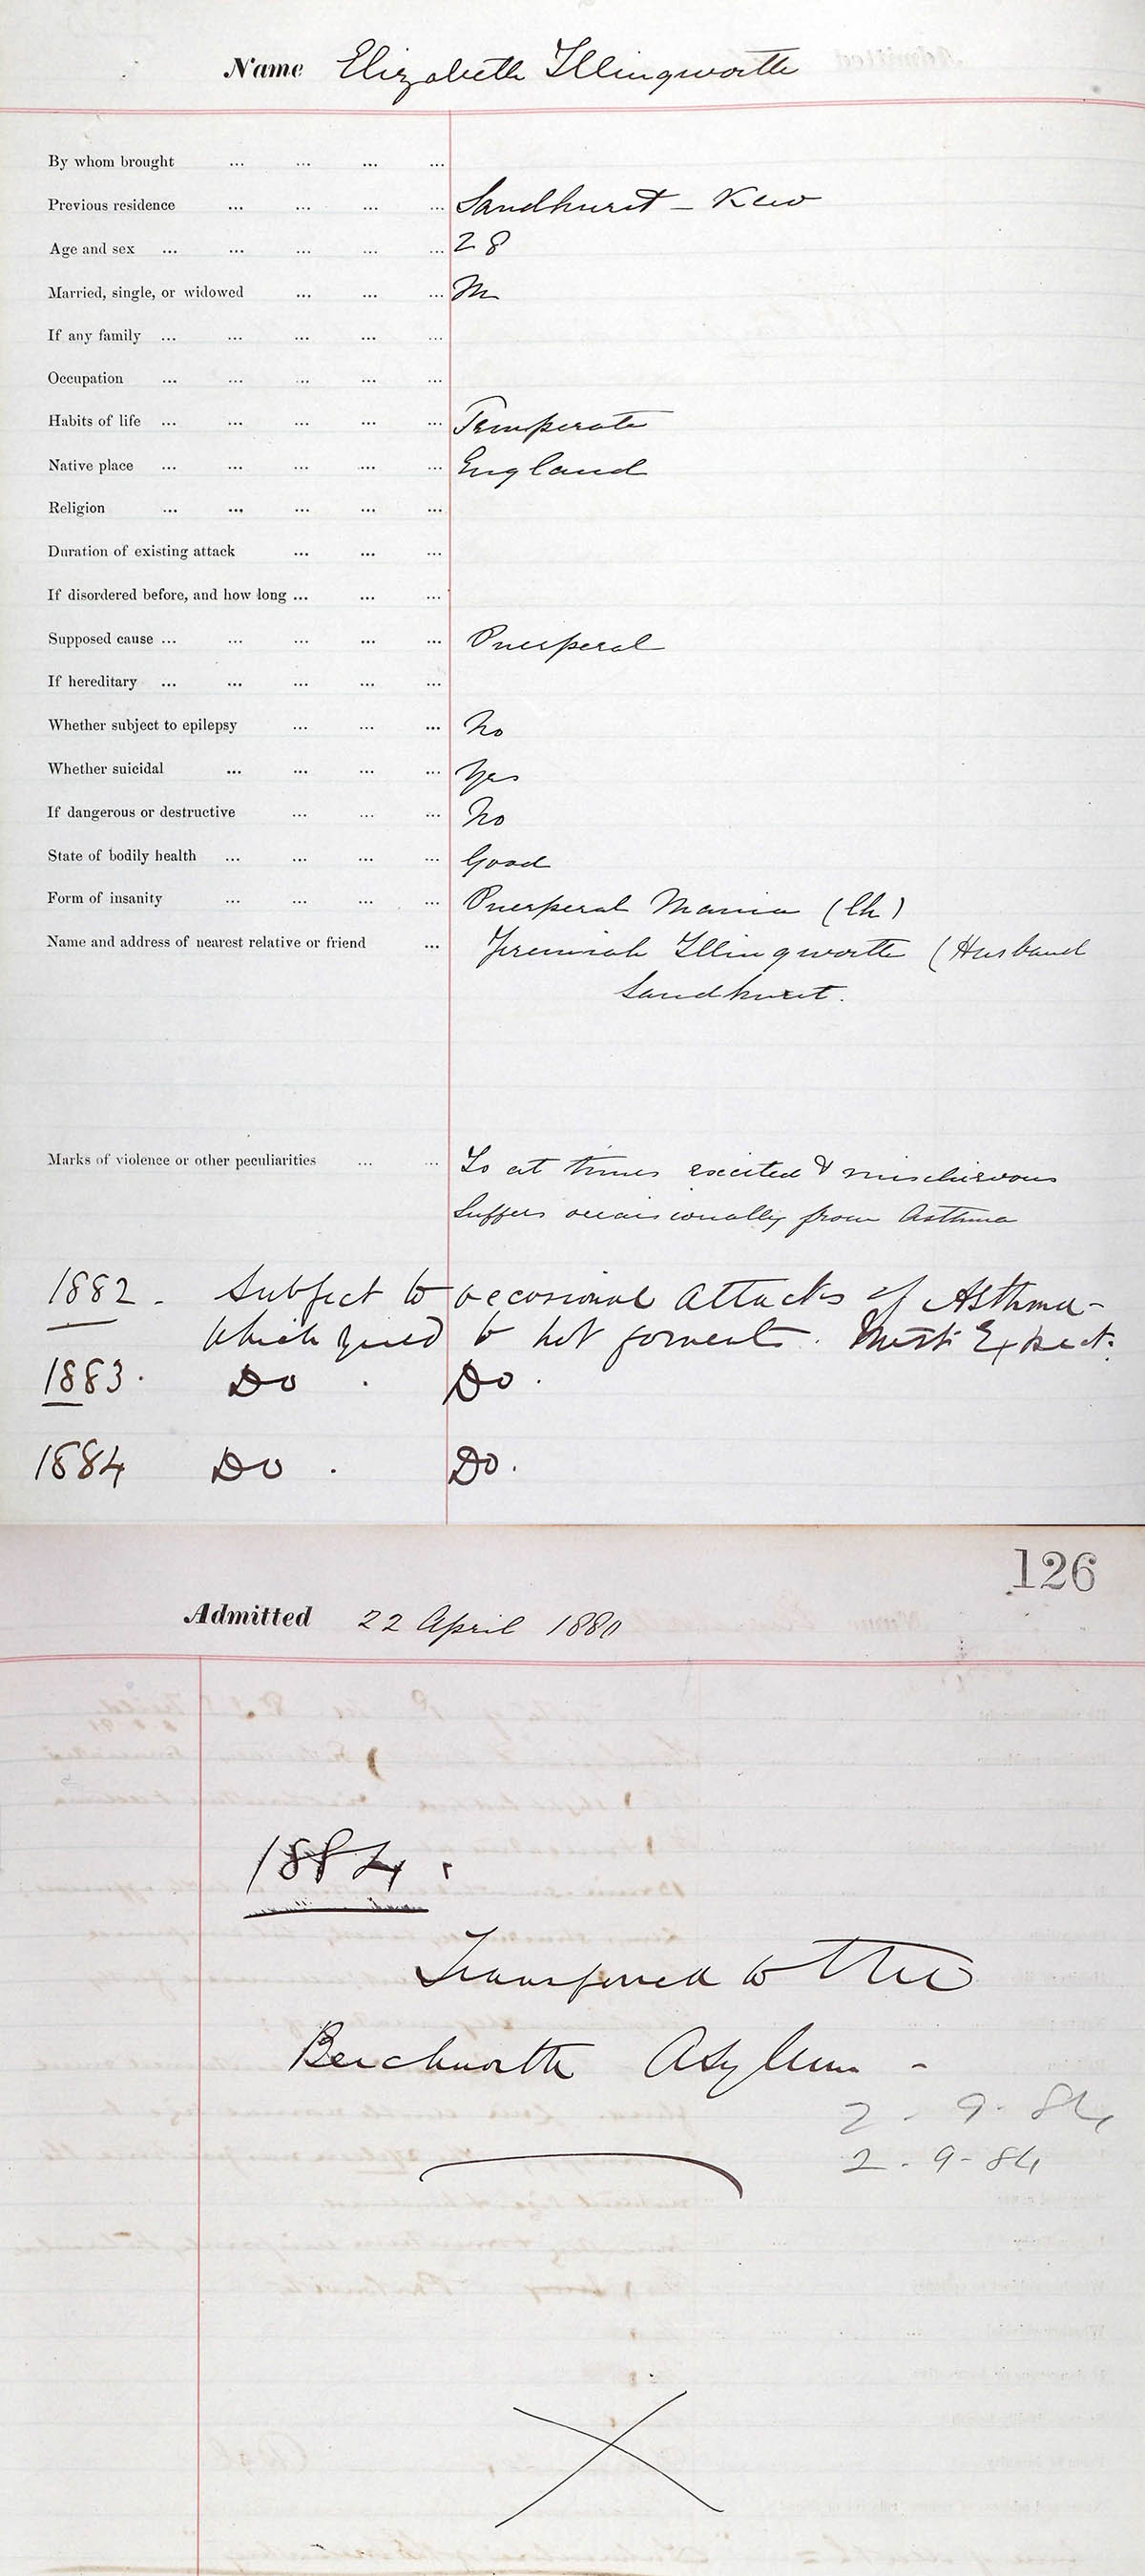 Name Elizabeth Illingworth
By whom brought ... ... ... ...
Previous residence ... ... ... ... Sandhurst - Kew
Age and sex ... ... ... ... ... 28
Married, single, or widowed ... ... ... M
If any family ... ... ... ... ...
Occupation ... ... ... ... ...
Habits of life ... ... ... ... ... Temperate
Native place ... ... ... ... ... England
Religion ... ... ... ... ...
Duration of existing attack ... ... ...
If disordered before, and how long ... ... ...
Supposed cause ... ... ... ... ... Puerperal
If hereditary ... ... ... ... ...
Whether subject to epilepsy ... ... ... No
Whether suicidal ... ... ... ... Yes
If dangerous or destructive ... ... ... No
State of bodily health ... ... ... ... Good
Form of insanity ... ... ... ... Puerperal Mania (Ch)
Name and address of nearest relative or friend ... Jeremiah Illingworth (Husband
Sandhurst.
Marks of violence or other peculiarities ... ... Is at times excited & mischievous
Suffers occasionally from Asthma
1882. Subject to occasional attacks of Asthma-
which yield to hot foments. Mist Expect.
1883. Do . Do.
1884 Do . Do.
126
Admitted 22 April 1880
1884.
Transferred to the
Beechworth Asylum -
2-9-84
2-9-84